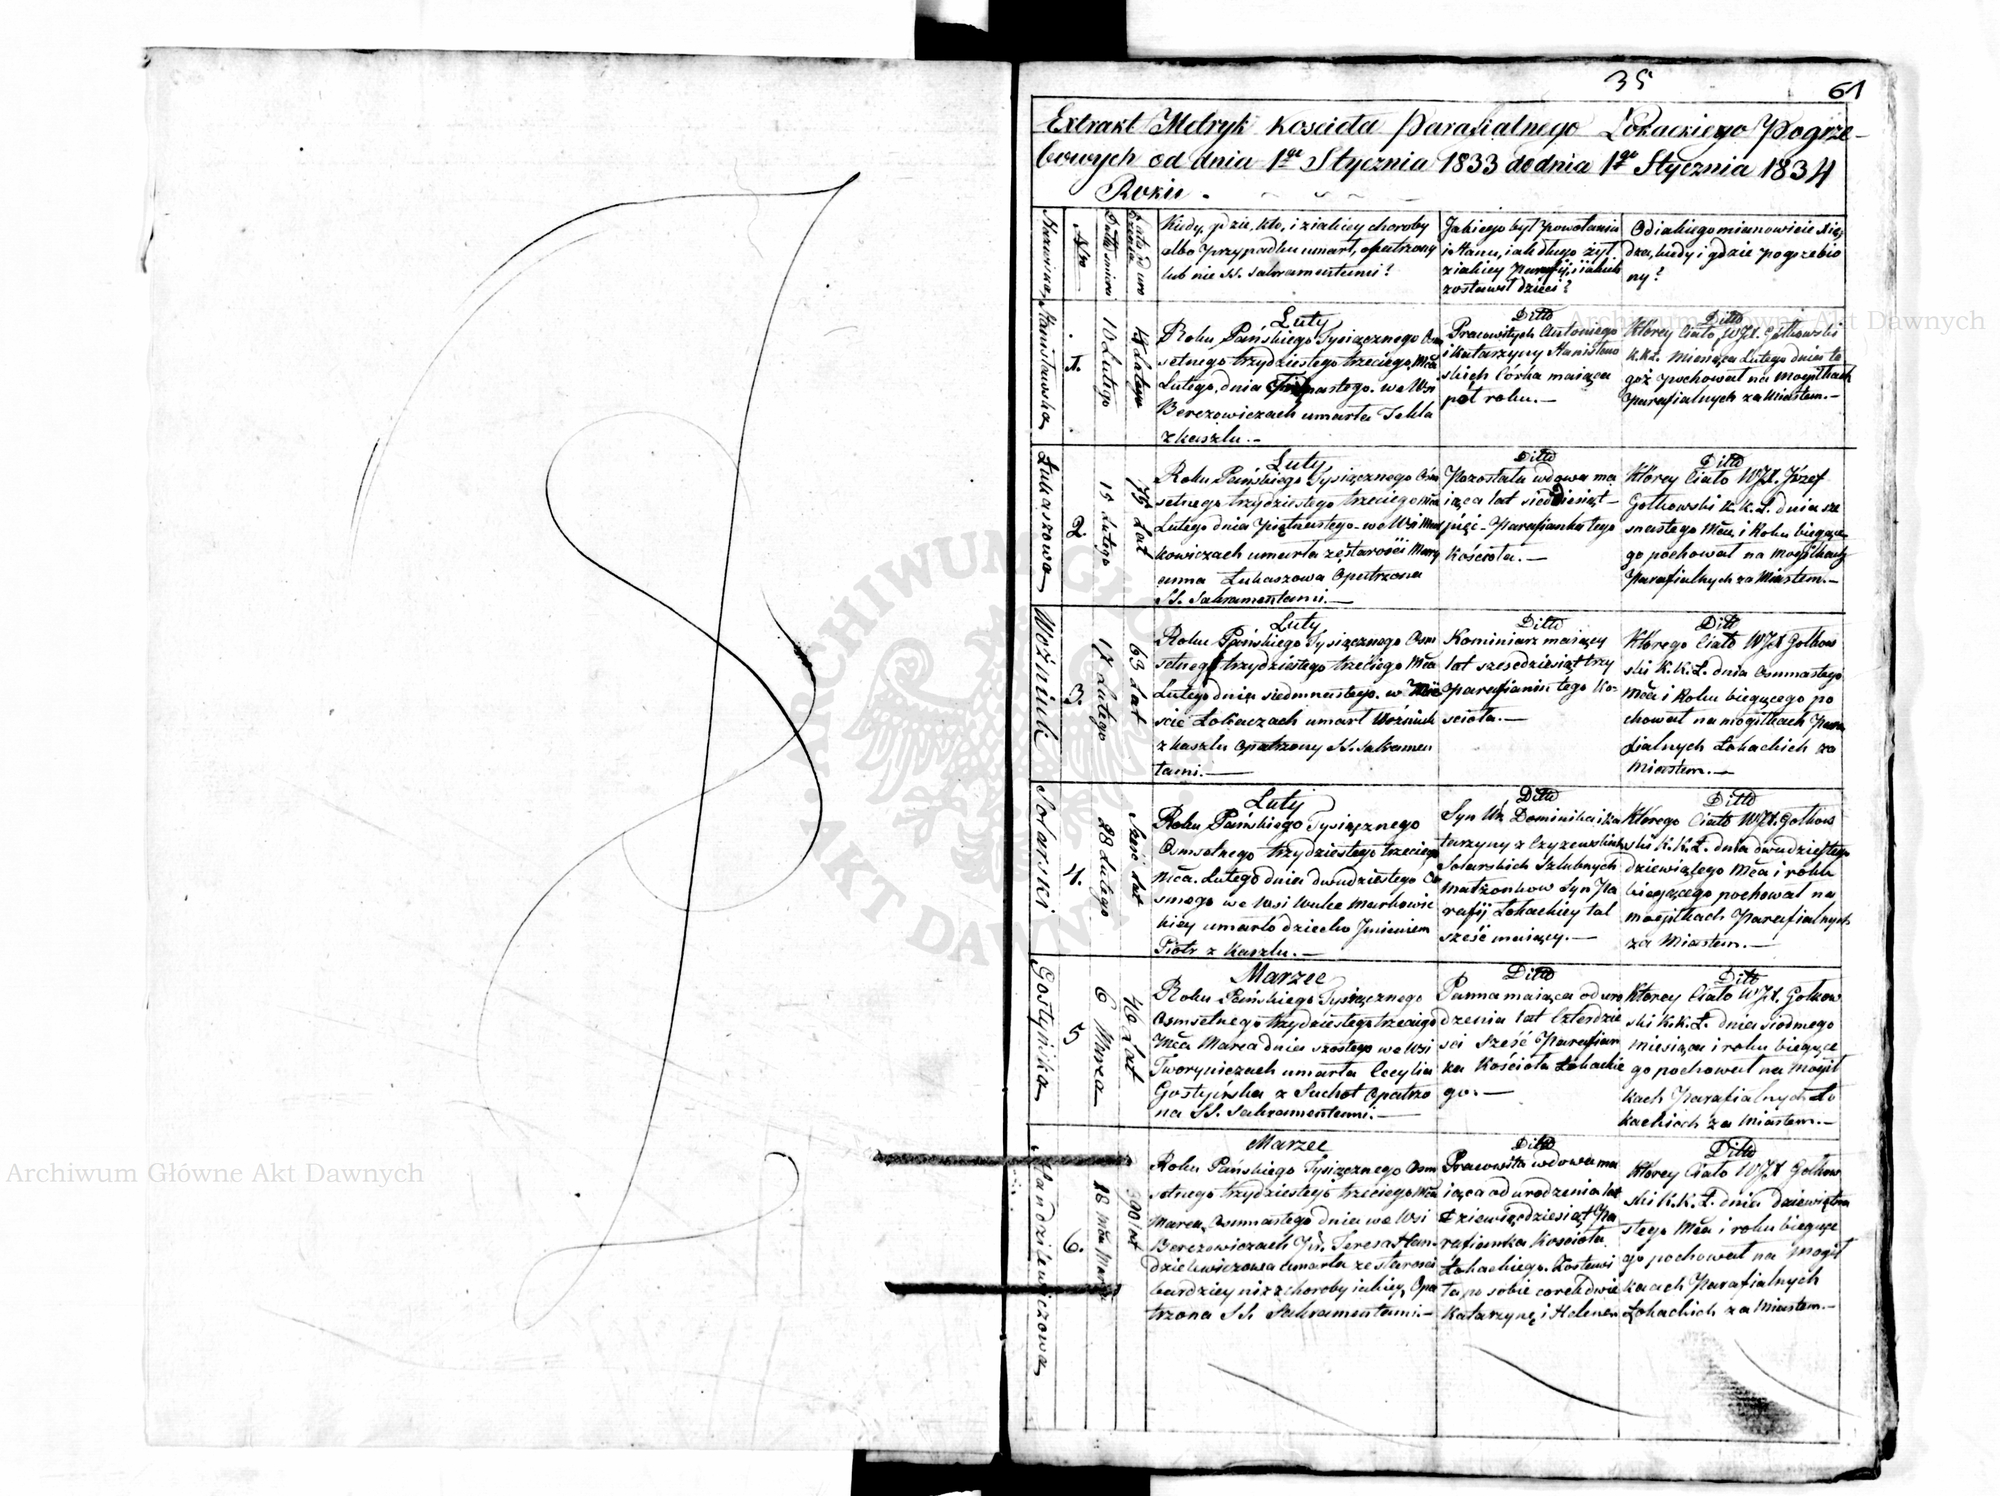 35
61
Extrakt Metryk Koscioła Parafialnego Łokackiego Pogrze-
bowych od dnia 1go Stycznia 1833 do dnia 1go Stycznia 1834
Roku.
Nazwiska
Nro
Data śmierci
Lata od uro
dzenia
Kiedy, gdzie, kto, i z iakiey choroby
albo przypadku umarł, opatrzony
lub nie SS. Sakramentami?
Jakiego był powołania
i stanu, iak długo żył
z iakiey Parafij, i iakich
zostawił dzieci?
Od iakiego mianowicie Xię
dza, kiedy i gdzie pogrzebio
ny?
Stanisławska
1.
10 Lutego
Luty
Roku Pańskiego Tysiącznego Osm
setnego trzydziestego trzeciego Mca
Lutego, dnia we Wsi
Berezowiczach umarła Tekla
z kaszlu.—
Ditto
Pracowitych Antoniego
i Katarzyny Stanisław
skich Córka maiąca
pół roku.—
Ditto
Którey Ciało WJX. Gołkowski
K.K.Ł. Miesiąca Lutego dnia te
goż pochował na mogiłkach
Parafialnych za Miastem.—
Łukaszowa
2
15 Lutego
75 Lat
Luty
Roku Pańskiego Tysiącznego Ośm
setnego trzydziestego trzeciego Mca
Lutego dnia Piętnastego we Wsi Mar
kowiczach umarła ze starości Mary
anna Łukaszowa Opatrzona
SS. Sakramentami.—
Ditto
Pozostała wdowa ma
iąca lat siedmdziesiąt
pięć - Parafianka tego
Kościoła.—
Ditto
Którey Ciało WJX. Józef
Gołkowski K.K.Ł. dnia sze
snastego Mca i Roku bieżące
go pochował na Mogiłkach
Parafialnych za Miastem.—
Woźniuk
3.
17 Lutego
63 Lat
Luty
Roku Pańskiego Tysiącznego Osm
setnego trzydziestego trzeciego Mca
Lutego dnia siedmnastego. w Mie
scie Łokaczach umarł Woźniuk
z kaszlu Opatrzony SS. Sakramen
tami.—
Ditto
Kominiarz maiący
lat szesdziesiąt trzy
Parafianin tego Ko-
scioła.—
Ditto
Którego Ciało WJX Gołkow
ski K.K.Ł. dnia Osmnastego
Mca i Roku bieżącego po
chował na mogiłkach Para
fialnych Łokackich za
Miastem.—
Solarski
4.
28 Lutego
Sześć lat
Luty
Roku Pańskiego Tysiącznego
Osmsetnego trzydziestego trzeciego
Mca. Lutego dnia dwudziestego O
smego we Wsi Wulce Markowic
kiey umarło dziecko Jmieniem
Piotr z Kaszlu.—
Ditto
Syn Ur. Dominika i Ka
tarzyny z Czyzewskich
Solarskich Szlubnych
Małżonkow Syn Pa
rafij Łokackiey lat
sześć maiący.—
Ditto
Którego Ciało WJX. Gołkow
ski K.K.Ł. dnia dwudziestego
dziewiątego Mca i roku
bieżącego pochował na
mogiłkach Parafialnych
za Miastem.—
Gostyńska
5
6 Marca
46 Lat
Marzec
Roku Pańskiego Tysiącznego
Osmsetnego trzydziestego trzeciego
Mca Marca dnia szostego we Wsi
Tworyniczach umarła Cecylia
Gostyńska z Suchot Opatrzo
na SS. Sakramentami.—
Ditto
Panna maiąca od uro
dzenia lat Czterdzie
sci sześć Parafian
ka Kościoła Łokackie
go.—
Ditto
Którey Ciało WJX. Gołkow
ski K.K.Ł. dnia siodmego
miesiąca i roku bieżące
go pochował na Mogił
kach Parafialnych Ło
kackich za Miastem.—
Handzilewiczowa
6.
18 Mca Marca
90 lat
Marzec
Roku Pańskiego Tysiącznego Osm
setnego trzydziestego trzeciego Mca
Marca, Osmnastego dnia we Wsi
Berezowiczach Teresa Han
dzilewiczowa umarła ze starosci
bardziey niż z choroby iakiey, Opa
trzona SS. Sakramentami.—
Ditto
Pracowita wdowa ma
iąca od urodzenia lat
Dziewięćdziesiąt Pa
rafianka Kościoła
Łokackiego. Zostawi
ła po sobie corek dwie
Katarzynę i Helenę
Ditto
Którey Ciało WJX Gołkow
ski K.K.Ł. dnia dziewiętna
stego Mca i roku bieżące
go pochował na Mogił
kach Parafialnych
Łokackich za Miastem.—
Archiwum Główne Akt Dawnych
Archiwum Główne Akt Dawnych
ARCHIWUM GŁÓWNE AKT DAWNYCH